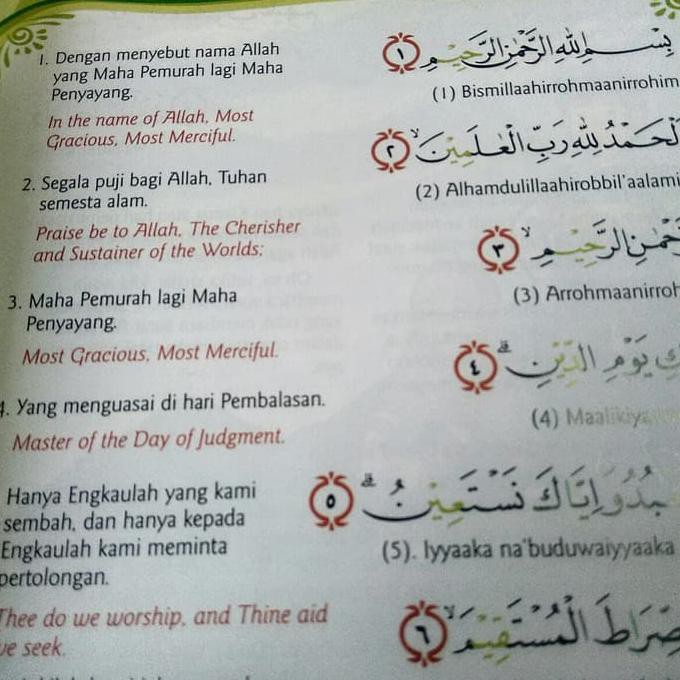 1. Dengan menyebut nama Allah
yang Maha Pemurah lagi Maha
Penyayang.
In the name of Allah, Most
Gracious, Most Merciful.
2. Segala puji bagi Allah, Tuhan
semesta alam.
Praise be to Allah, The Cherisher
and Sustainer of the Worlds;
3. Maha Pemurah lagi Maha
Penyayang.
Most Gracious, Most Merciful.
4. Yang menguasai di hari Pembalasan.
Master of the Day of Judgment.
Hanya Engkaulah yang kami
sembah, dan hanya kepada
Engkaulah kami meminta
pertolongan.
Thee do we worship, and Thine aid
we seek.
بِسْمِ اللهِ الرَّحْمٰنِ الرَّحِيْمِ ١
(1) Bismillaahirrohmaanirrohim
اَلْحَمْدُ لِلّٰهِ رَبِّ الْعٰلَمِيْنَ ٢
(2) Alhamdulillaahirobbil'aalami
الرَّحِيْمِ ٣
(3) Arrohmaanirroh
يَوْمِ الدِّيْنِ ٤
(4) Maalikiya
وَاِيَّاكَ نَسْتَعِيْنُ ٥
(5). Iyyaaka na'buduwaiyyaaka
الْمُسْتَقِيْمَ ٦